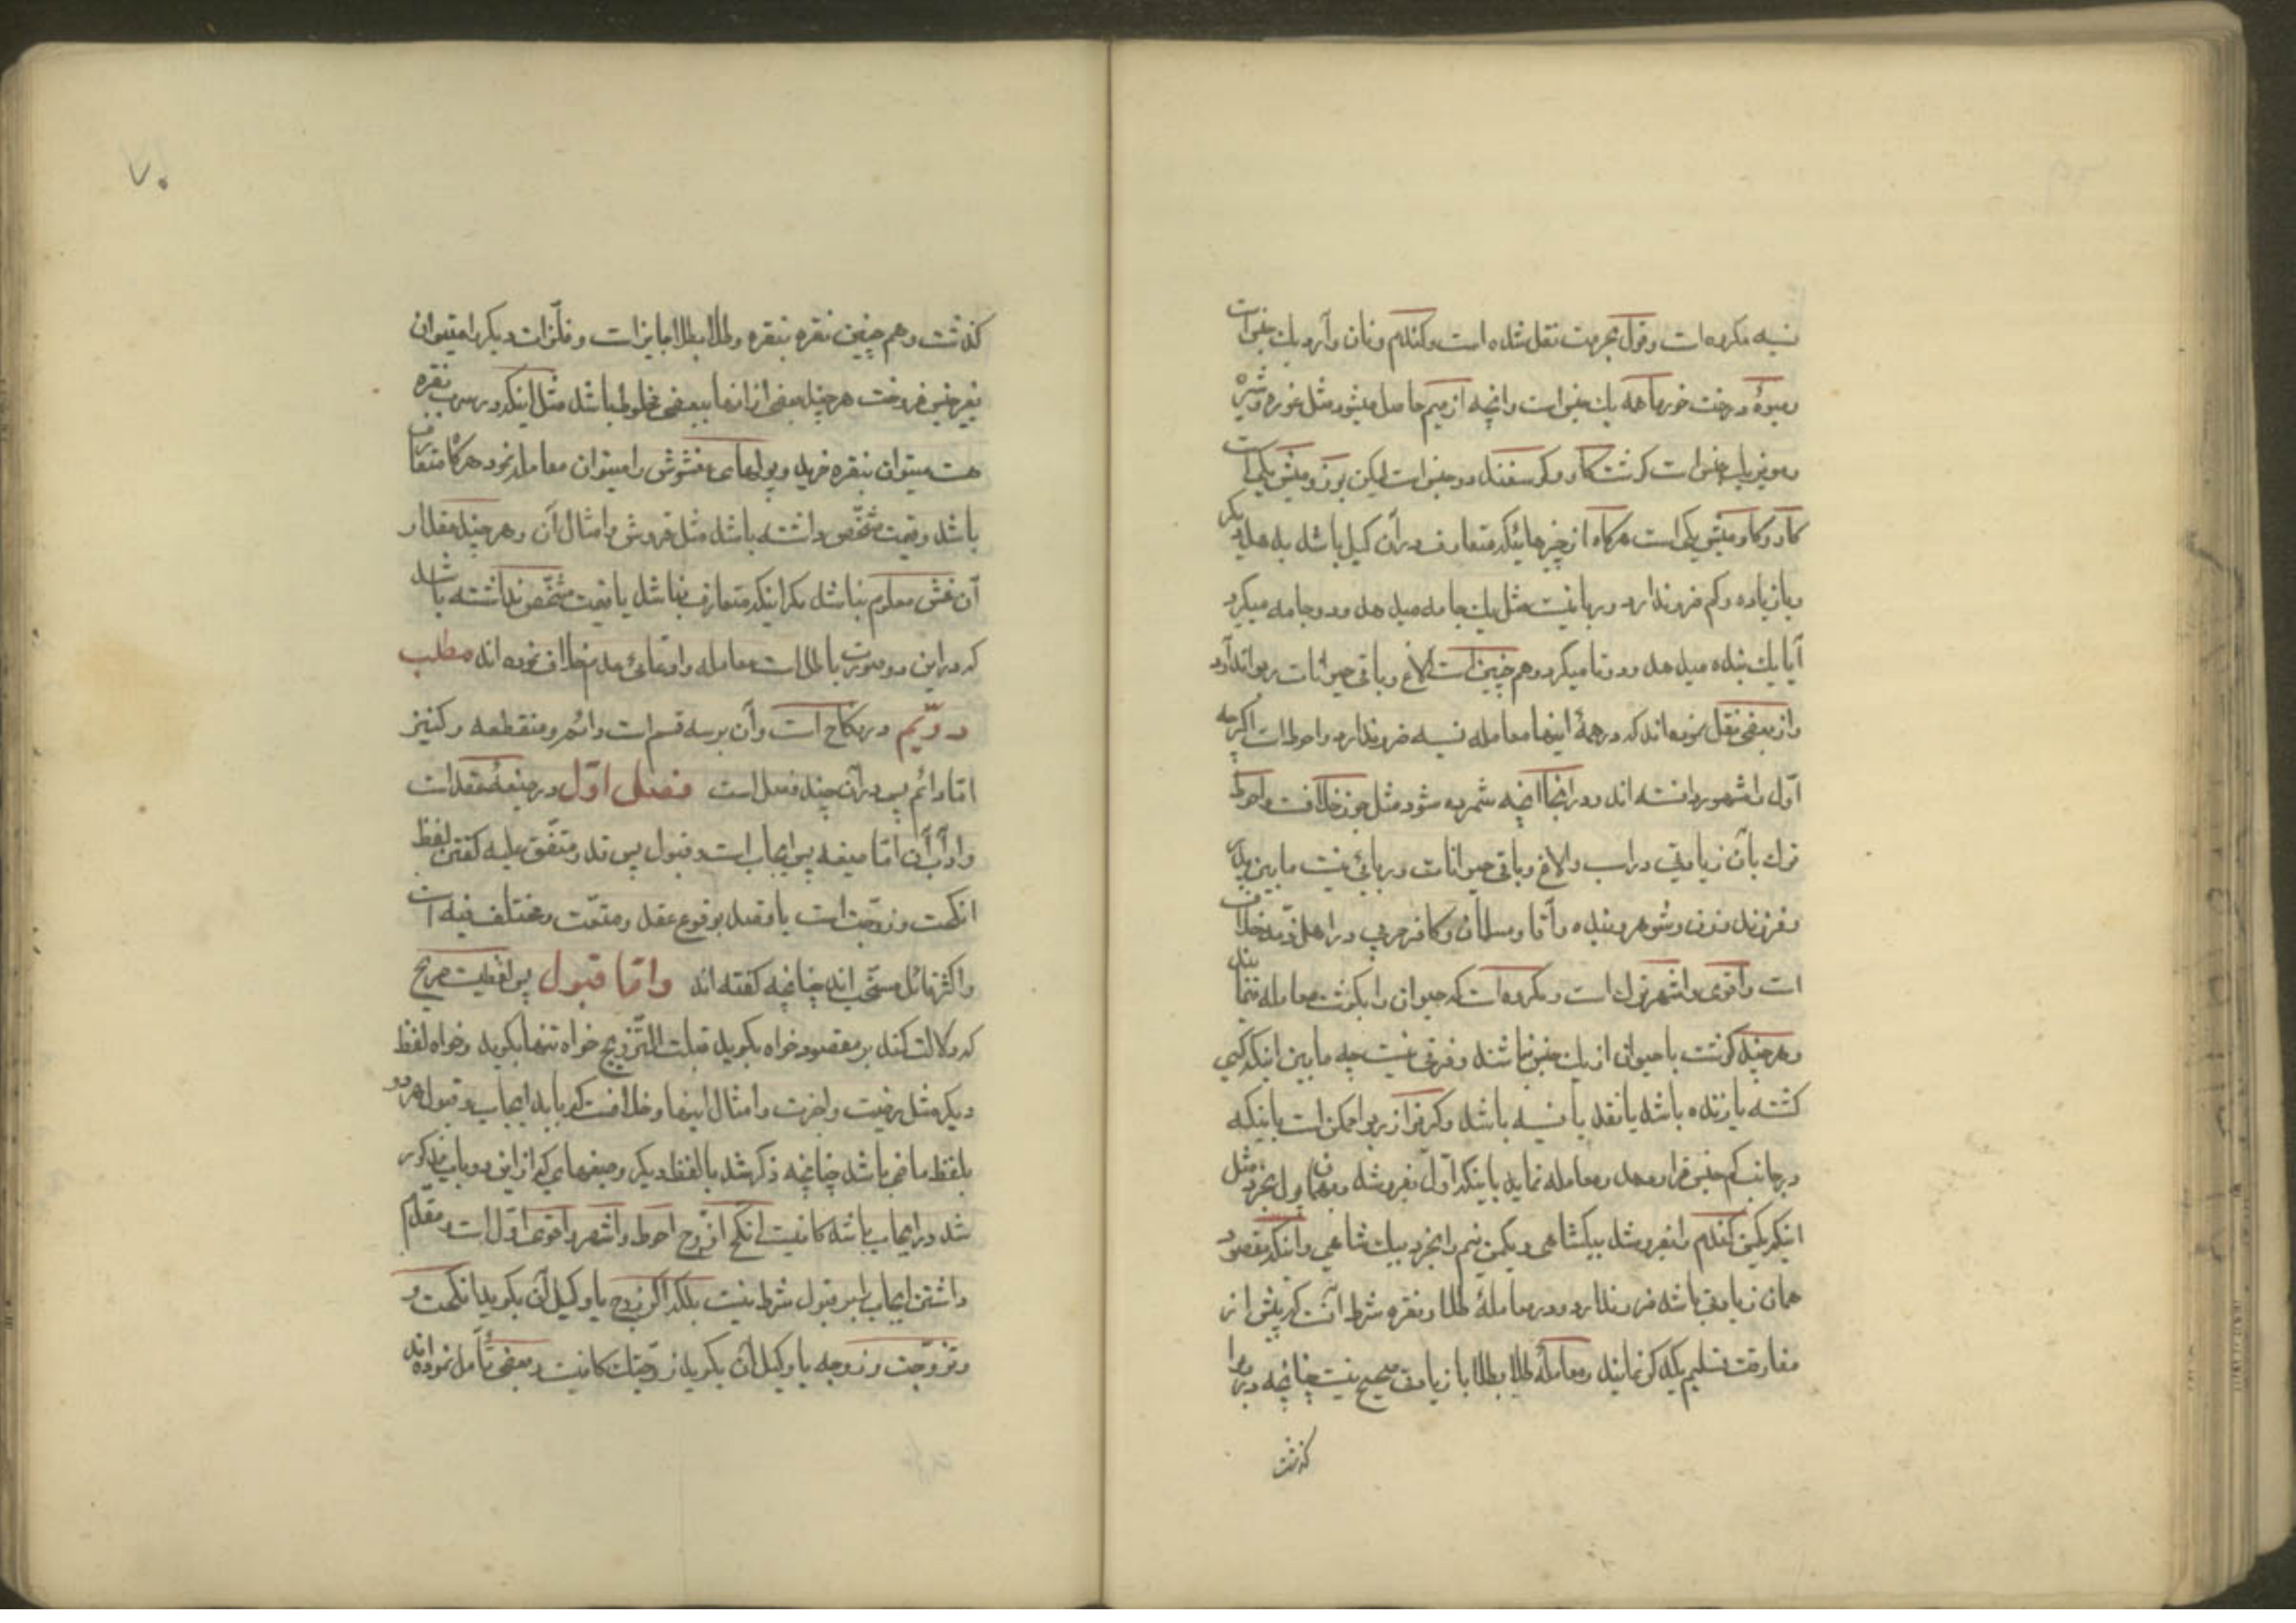 نسیه مکروه است وقول بحرمت نقل شده است وکندم ونان وآرد یك جنس است
ومیوهٔ درخت خورما همه یك جنس است وانچه از میم حاصل میشود مثل غوره وشیره
ومویز یك جنس است کوشت کاو وکوسفند دو جنس است لیکن بز ومیش یکی است
کاو وکاومیش یکی است هرکاه از چیزهائیکه متعارف درآن کیل باشد بدهد دیکر
وبا زیاده وکم ضرر ندارد وربا نیست مثل یك جامه میدهد ودو جامه میکیرد
آیا یك بنده میدهد ودوتا میکیرد وهم چنین است الاغ وباقی حیوانات ربواند آورد
واز بعضی نقل نموده اند که درهمهٔ اینها معامله نسیه ضرر ندارد واحوط است اکرچه
اوّل را مشهور دانسته اند ودر انجا انچه شمرده شود مثل جوز خلافست واحوط
ترك بآن زیادتی در اسب والاغ وباقی حیوانات وربائی نیست مابین پدر
وفرزند وزن وشوهر وبنده وآقا ومسلمان وکافر حربی ودر اهل ذمّه خلاف
است واقوی واشهر ترك است ومکروه است که حیوان را بکوشت معامله نمایند
وهرچند کوشت با حیوان از یك جنس نباشند وفرقی نیست چه مابین اینکه کسی
کشته یا زنده باشد یا نقد یا نسیه باشد وکریز از ربوا ممکن است باینکه
درجانب کم جنس قرار دهد ومعامله نماید یا اینکه اوّل بفروشد وبهمان پول بخرد مثل
اینکه یکمن کندم را بفروشد بیکشاهی ویکمن نیم را بخرد بیك شاهی واینکه مقصود
همان زیادتی باشد ضرر ندارد ودر معاملهٔ طلا ونقره شرط آنست که پیش از
مفارقت تسلیم یکدیکر نمایند ومعاملهٔ طلا بطلا با زیادتی صحیح نیست چنانچه در ربوا
کذشت
۷۰
کذشت وهم چنین نقره بنقره وطلا بطلا جایز است وفلزّات دیکر را میتوان
بغیر جنس فروخت هرچند بعضی از انها ببعضی مخلوط باشد مثل اینکه در سرب نقره
هست میتوان بنقره خرید وپولهای مغشوش را میتوان معامله نمود هرکاه متعارف
باشد وقیمت مشخّص داشته باشد مثل قروش وامثال آن وهرچند مقدار
آن غش معلوم نباشد مکر اینکه متعارف نباشد یا قیمت مشخّص نداشته باشد
که دراین دو صورت باطل است معامله وادعائ عدم خلاف نموده اند مطلب
دوّیم درنکاح است وآن برسه قسم است دائم ومنقطعه وکنیز
امّا دائم پس درآن چند فصل است فصل اوّل درصیغهٔ عقد است
وآداب آن امّا صیغه پس ایجاب است وقبول پس قدر متّفق علیه کفتن لفظ
انکحت وزوّجت است با قصد بوقوع عقد ومتعّت ومختلف فیه است
واکثر قائل مستحب اند چنانچه کفته اند وامّا قبول پس لفظیست صریح
که دلالت کند بر مقصود خواه بکوید قبلت التّزویج خواه تنها بکوید وخواه لفظ
دیکر مثل رضیت واجزت وامثال اینها وخلافست که باید ایجاب وقبول هر دو
بلفظ ماضی باشد چنانچه ذکر شد یا لفظ دیکر وصیغهای که از این دو باب مذکور
شد در ایجاب باشد کافیست انکح ازوّج احوط واشهر واقوی اوّل است ومقدّم
داشتن ایجاب بر قبول شرط نیست بلکه اکر زوج یا وکیل آن بکوید انکحت و
وتزوّجت وزوجه یا وکیل آن بکوید زوّجتك کافیست وبعضی تأمل نموده اند